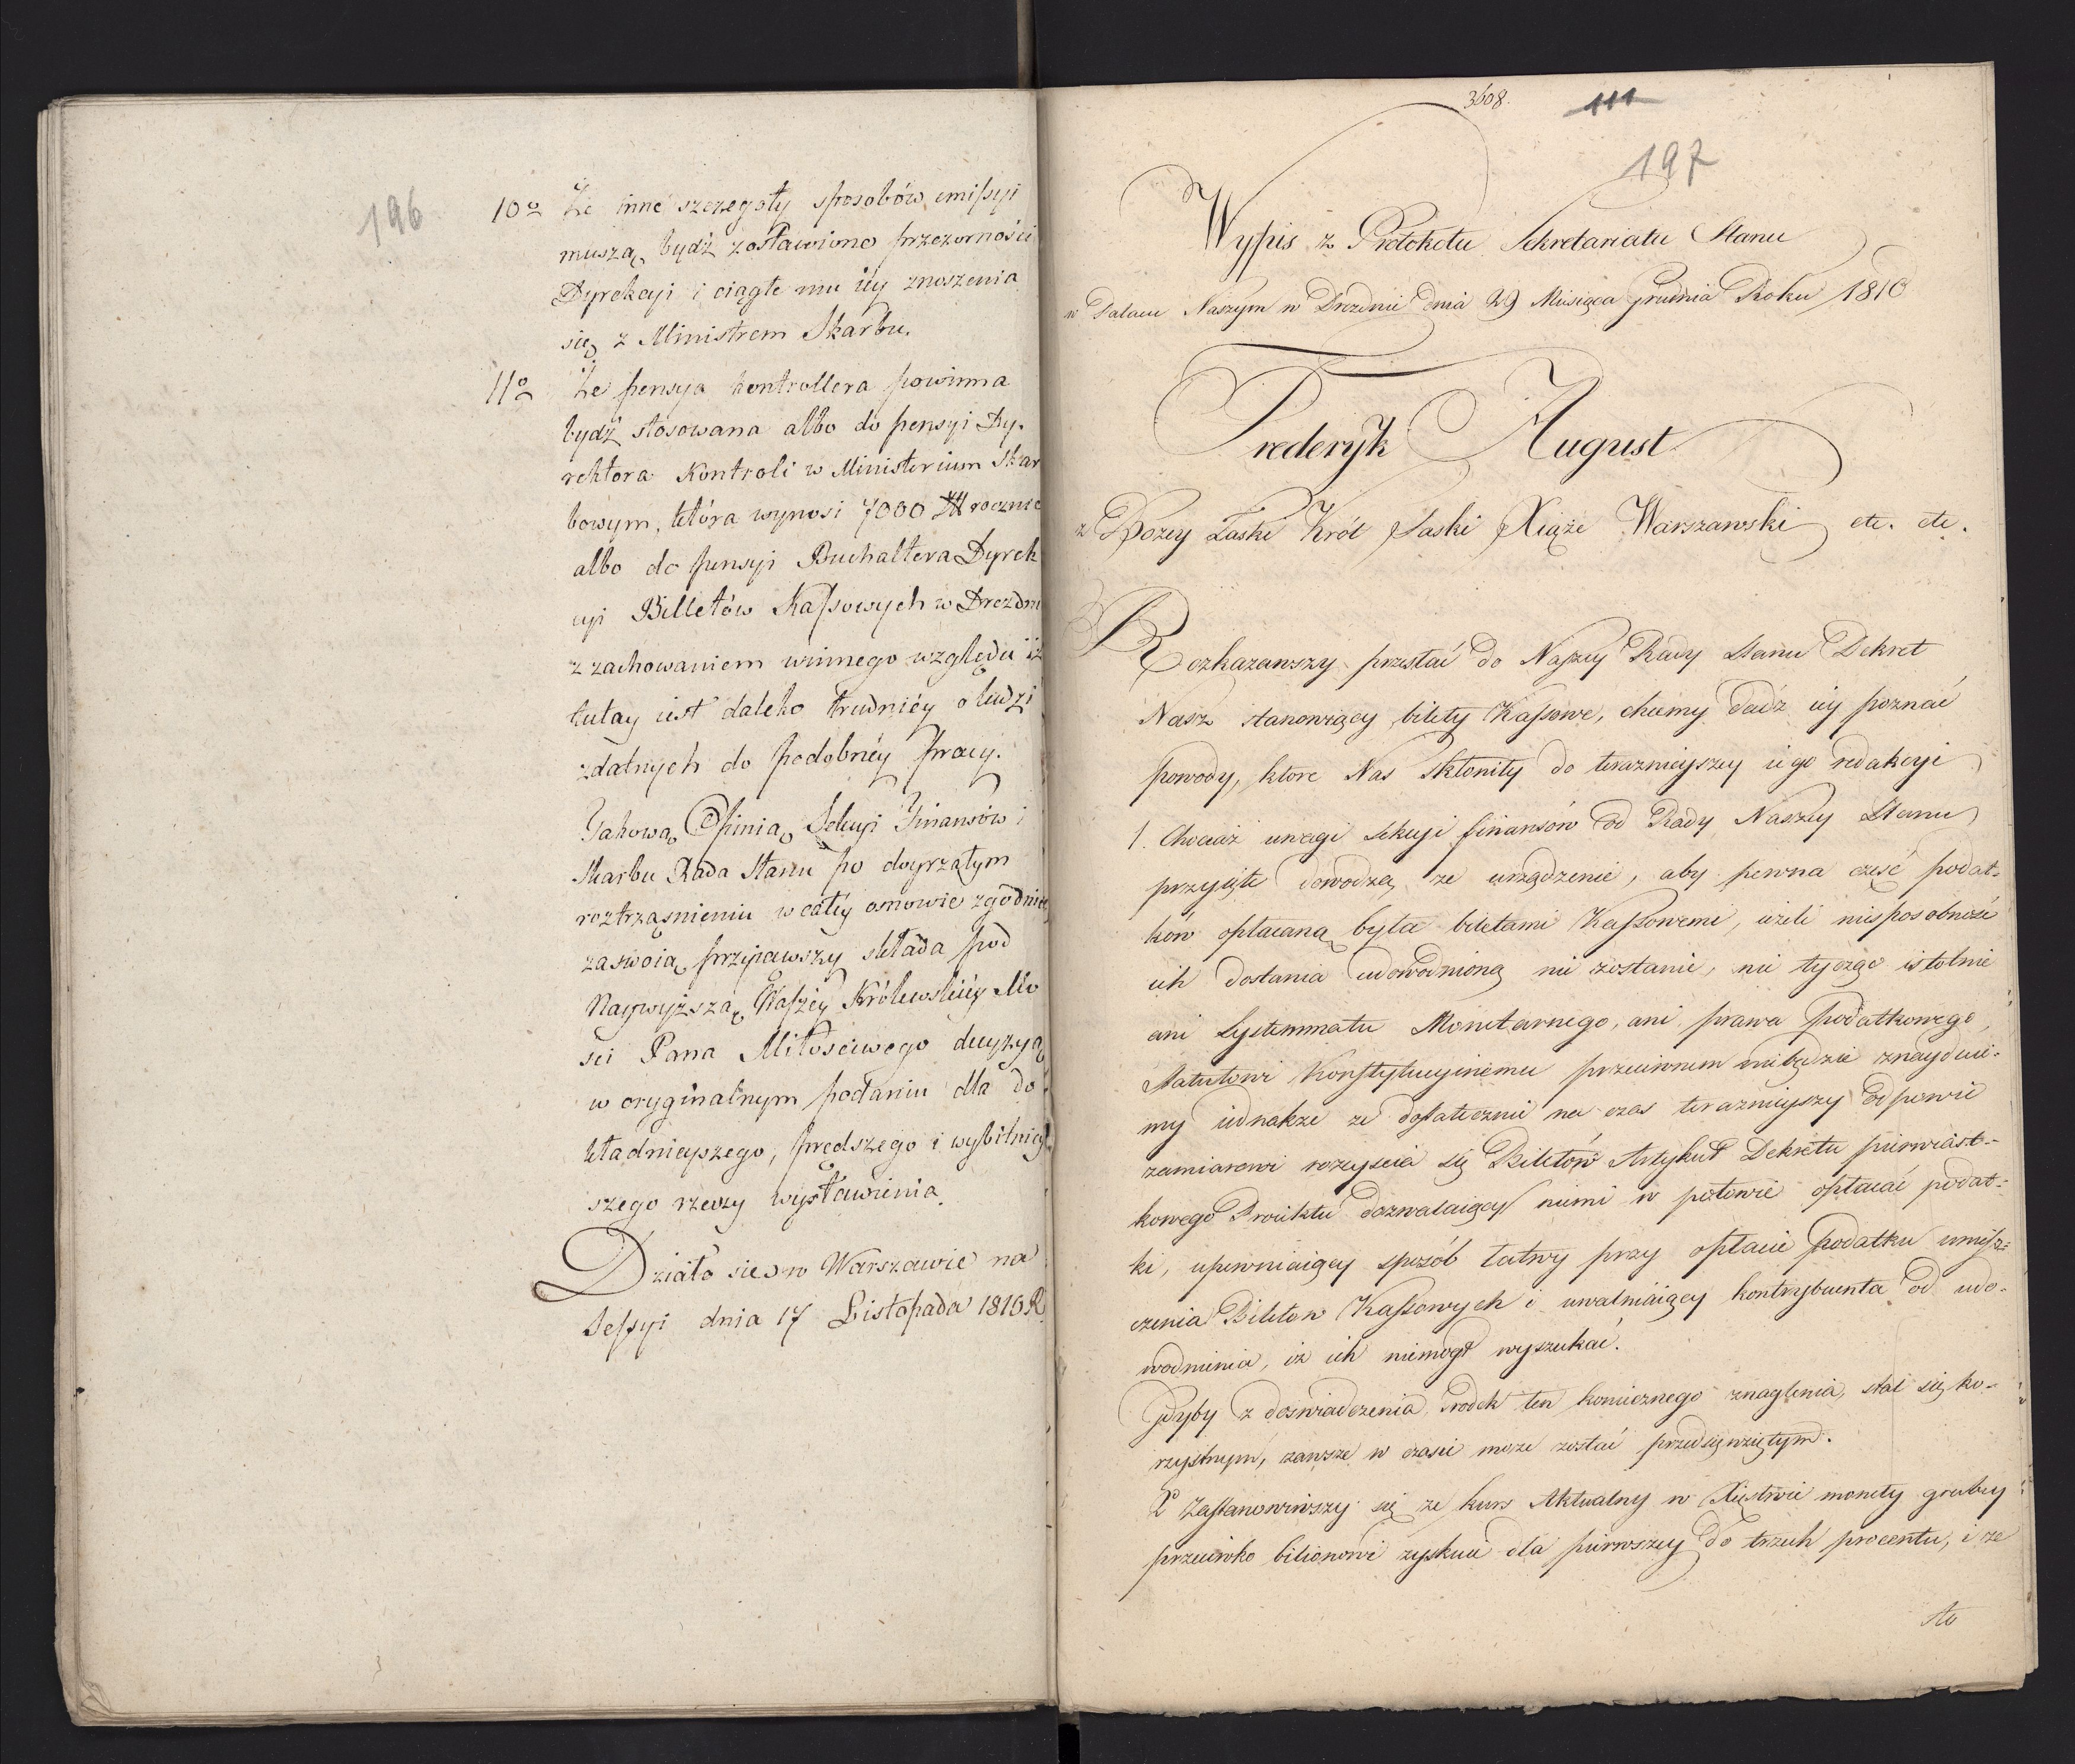 196
10o Że inne szczegoły sposobów emissyi
muszą bydź zostawione przezorności
Dyrekcyi i ciągłe mu iey znoszenia
się z Ministrem Skarbu.
11o Że pensya kontrollera powinna
bydź stosowana albo do pensyi Dy-
rektora Kontroli w Ministerium Skar
bowym, która wynosi 7000 rocznie
albo do pensyi Buchaltera Dyrek
cyi Billetów Kassowych w Drezdni
z zachowaniem winnego względu iż
tutay iest daleko trudniéy o ludzi
zdatnych do podobnéy pracy.
Jakową Opinią Sekcyi Finansów i
Skarbu Rada Stanu po doyrzałym
roztrząśnieniu w całéy osnowie zgodnie
za swoią przyiąwszy składa pod
Naywyższą Waszéy Królewskiéy Mo
ści Pana Miłościwego decyzyą
w oryginalnym podaniu dla do
kładnieyszego, prędszego i wybitniey
szego rzeczy wystawienia.
Działo się w Warszawie na
Sessyi dnia 17 Listopada 1810 R.
3608.
111
197
Wypis z Protokołu Sekretariatu Stanu
w Pałacu Naszym w Dreznie dnia 29 Miesiąca Grudnia Roku 1810
Frederyk August
z Bożey Łaski Król Saski Xiąże Warszawski etc. etc.
Rozkazawszy przesłać do Naszey Rady Stanu Dekret
Nasz stanowiący bilety Kassowe, chcemy dadź iey poznać
powody, ktore Nas skłoniły do teraznieyszey iego redakcyi
1. Chociaż uwagi Sekcyi finansów od Rady Naszey Stanu
przyięte dowodzą, ze urządzenie, aby pewna część podat-
ków opłacaną była biletami Kassowemi, ieżeli niesposobność
ich dostania udowodnioną nie zostanie, nie tycząc istotnie
ani Systemmatu Monetarnego, ani prawa podatkowego,
Statutowi Konstytucyinemu przeciwnem niebędzie znayduie-
my iednakze ze dostatecznie na czas teraznieyszy odpowie
zamiarowi rozeyscia się Biletów Artykuł Dekretu pierwiast-
kowego Proiektu dozwalaiący niemi w połowie opłacać podat-
ki, upewniaiący sposób łatwy przy opłacie podatku umiesz-
czenia Biletow Kassowych i uwalniaiący kontrybuenta od udo-
wodnienia, iż ich niemogł wyszukać.
Gdyby z doświadczenia środek ten koniecznego znaglenia, stał się ko-
rzystnym, zawsze w czasie może zostać przedsięwziętym.
2o Zastanowiwszy się ze kurs Aktualny w Xięstwie monety grubey
przeciwko bilionowi zyskuie dla pierwszey do trzech procentu, i ze
sto